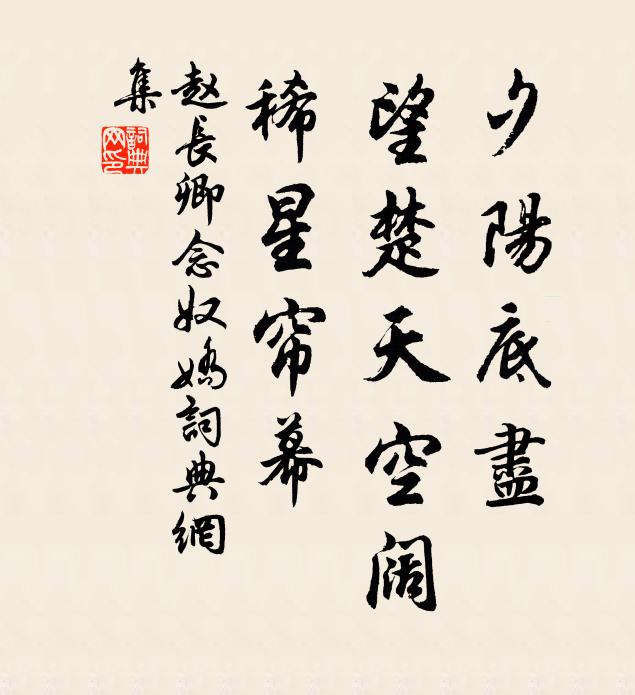 夕陽底盡
望楚天空阔
稀星帘幕
赵長卿念奴嬌詞典網
集
詞典网印